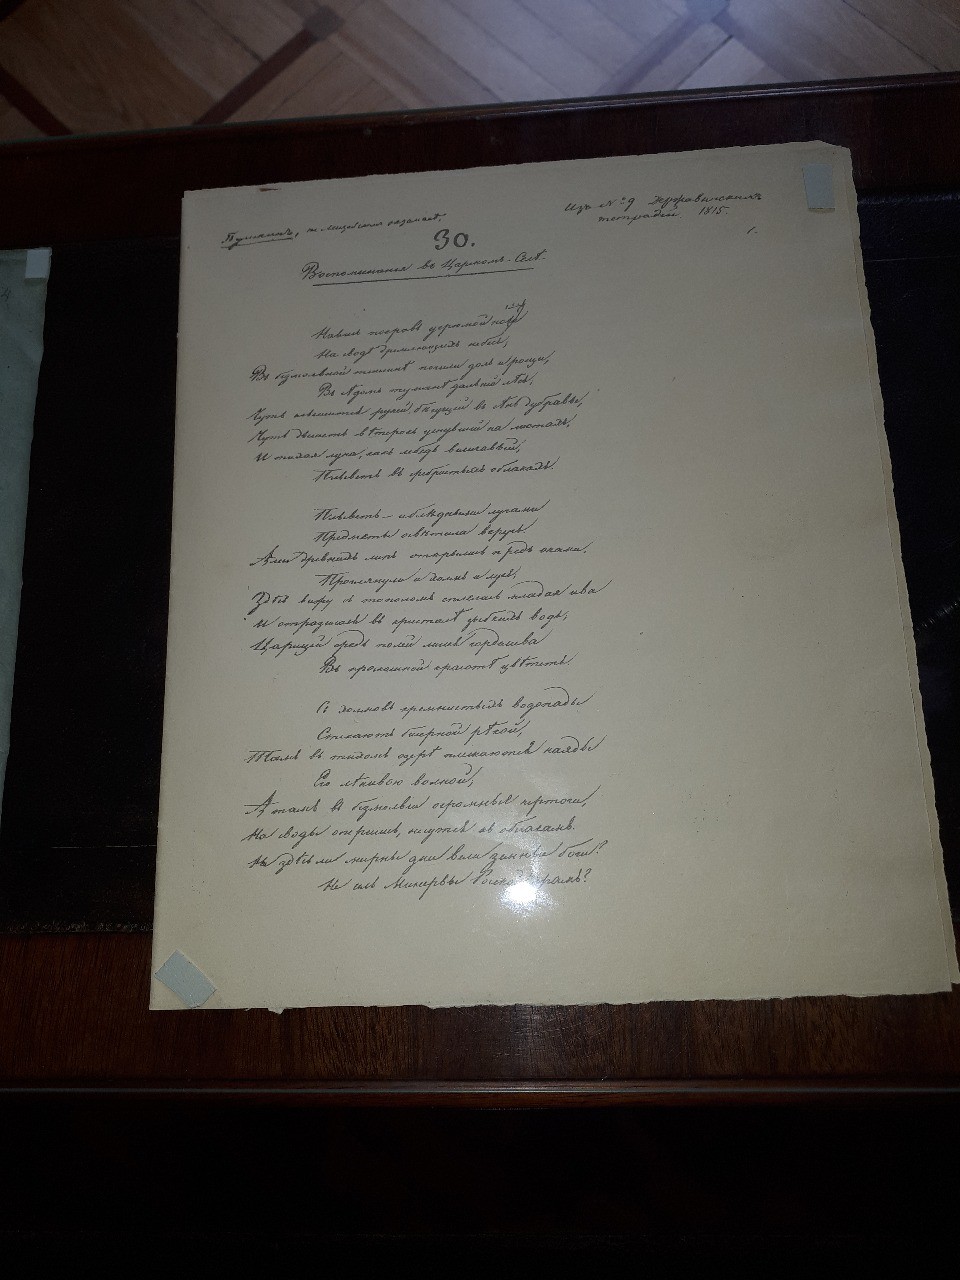 Пушкинъ,
Изъ № 9 Державинскихъ
тетрадей. 1815.
1.
30.
Воспоминанія въ Царкомъ-Селѣ.
Нависъ покровъ угрюмой нощи
На сводѣ дремлющихъ небесъ,
Въ безмолвной тишинѣ почили долъ и рощи,
Въ сѣдомъ туманѣ дальній лѣсъ,
Чуть слышится ручей, бѣгущій въ сѣнь дубравы,
Чуть дышетъ вѣтерокъ уснувшій на листахъ,
И тихая луна, какъ лебедь величавый,
Плыветъ въ сребристыхъ облакахъ.
Плыветъ – и блѣдными лучами
Предметы освѣтила вкругъ.
Аллеи древнихъ липъ открылись предъ очами,
Проглянули и холмъ и лугъ;
Здѣсь вижу съ тополомъ сплелась младая ива
И отразилась въ кристалѣ зыбкихъ водъ;
Царицей средь полей лилея горделива
Въ роскошной красотѣ цвѣтетъ.
Съ холмовъ кремнистыхъ водопады
Стекаютъ бисерной рѣкой,
Тамъ въ тихомъ озерѣ плескаются наяды
Его лѣнивою волной;
А тамъ въ безмолвіи огромные чертоги,
На своды опершись, несутся къ облакамъ.
Не здѣсь ли мирны дни вели земные боги?
Не сель Минервы Росской храмъ?